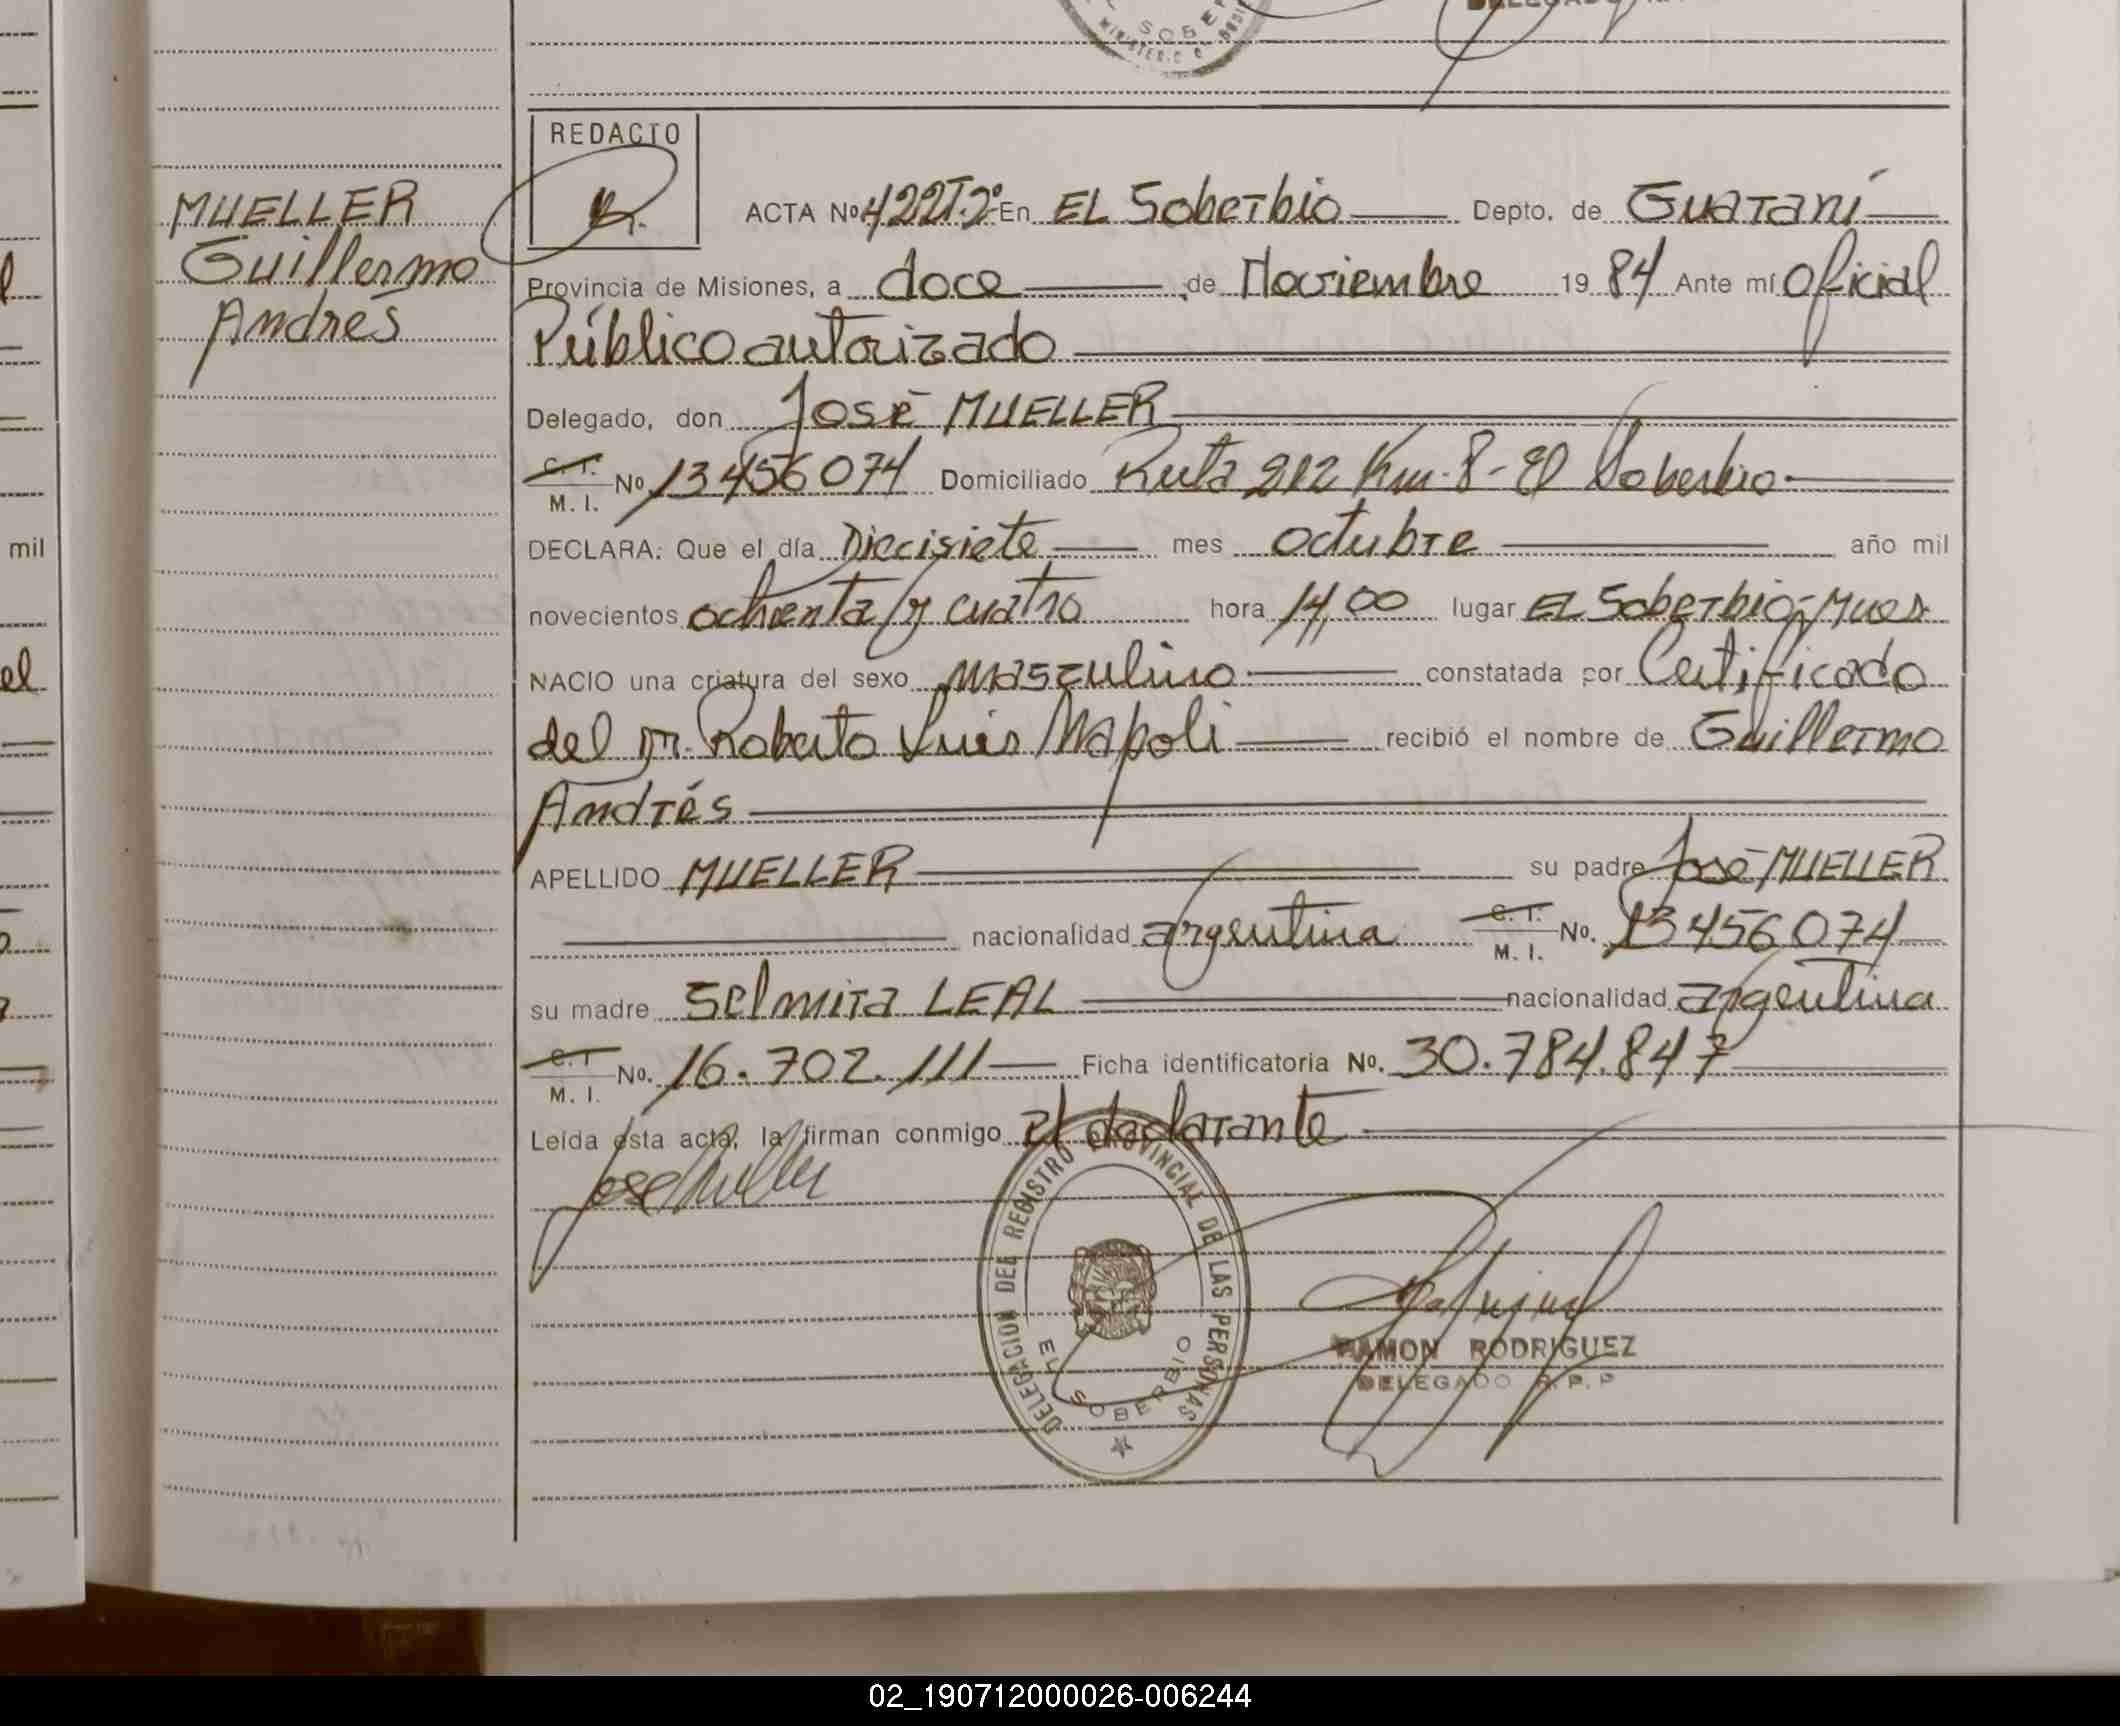 SOBER
MINISTERIO
REDACTO
MUELLER
Guillermo
Andrés
ACTA Nº 422T.2º En EL Soberbio Depto. de Guaraní
Provincia de Misiones, a doce de Noviembre 1984 Ante mí Oficial
Público autorizado
Delegado, don José MUELLER
C. I. M. I. Nº 13456074 Domiciliado Ruta 212 Km. 8 - El Soberbio
DECLARA: Que el día Diecisiete mes octubre año mil
novecientos ochenta y cuatro hora 14,00 lugar EL Soberbio, Mnes
NACIO una criatura del sexo masculino constatada por Certificado
del Dr. Roberto Luis Napoli recibió el nombre de Guillermo
Andrés
APELLIDO MUELLER su padre José MUELLER
nacionalidad argentina C. I. M. I. No. 13456074
su madre Selmira LEAL nacionalidad argentina
C. I M. I. No. 16.702.111 Ficha identificatoria No. 30.784.847
Leída esta acta, la firman conmigo el declarante
Jose Mueller
DELEGACION DEL REGISTRO PROVINCIAL DE LAS PERSONAS
EL SOBERBIO
RAMON RODRIGUEZ
DELEGADO R.P.P
mil
el
02_190712000026-006244